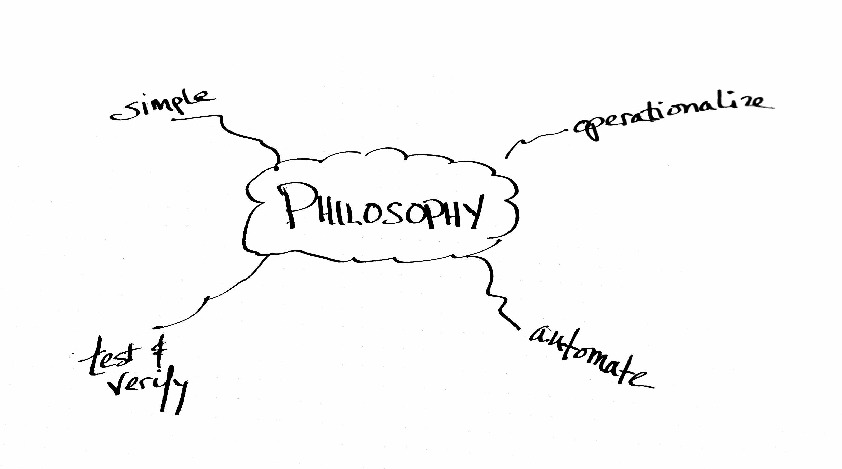 simple
operationalize
PHILOSOPHY
test &
verify
automate